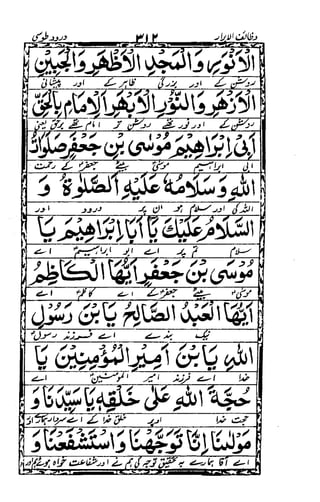 وظائف الابرار ۳۱۲ درود طوسی
الْاَنْوَرِ وَالْمَجْدِ الْاَظْهَرِ وَالْجَبِيْنِ
روشن کے اور بزرگی ظاہر کے اور پیشانی
الْاَزْهَرِ وَالنُّوْرِ الْاَبْهَرِ الْاِمَامِ بِالْحَقِّ
روشن کے اور نور روشن تر امام برحق یعنی
اَبِيْ اِبْرَاهِيْمَ مُوْسَى بْنِ جَعْفَرٍ صَلَوَاتُ
ابی ابراہیم موسیٰ بیٹے جعفر کے رحمت
اللهِ وَسَلَامُهُ عَلَيْهِ الصَّلٰوةُ وَ
اللہ کی اور سلام ہو ان پر درود اور
السَّلَامُ عَلَيْكَ يَا اَبَا اِبْرَاهِيْمَ يَا
سلام تم پر اے ابو ابراہیم اے
مُوْسَى بْنَ جَعْفَرٍ اَيُّهَا الْكَاظِمُ
موسیٰ بیٹے جعفر کے اے کاظم اے
اَيُّهَا الْعَبْدُ الصَّالِحُ يَا بْنَ رَسُوْلِ
نیک بندے اے فرزند رسول
اللهِ يَا بْنَ اَمِيْرِ الْمُؤْمِنِيْنَ يَا
خدا اے فرزند امیر المومنین اے
حُجَّةَ اللهِ عَلٰى خَلْقِهِ يَا سَيِّدَنَا وَ
حجت خدا اوپر خلق خدا کے اے سردار ہمارے اور
مَوْلٰىنَا اِنَّا تَوَجَّهْنَا وَاسْتَشْفَعْنَا وَ
اے آقا ہمارے بہ تحقیق توجہ کی ہم نے اور شفاعت خواہ ہوئے ہم اور